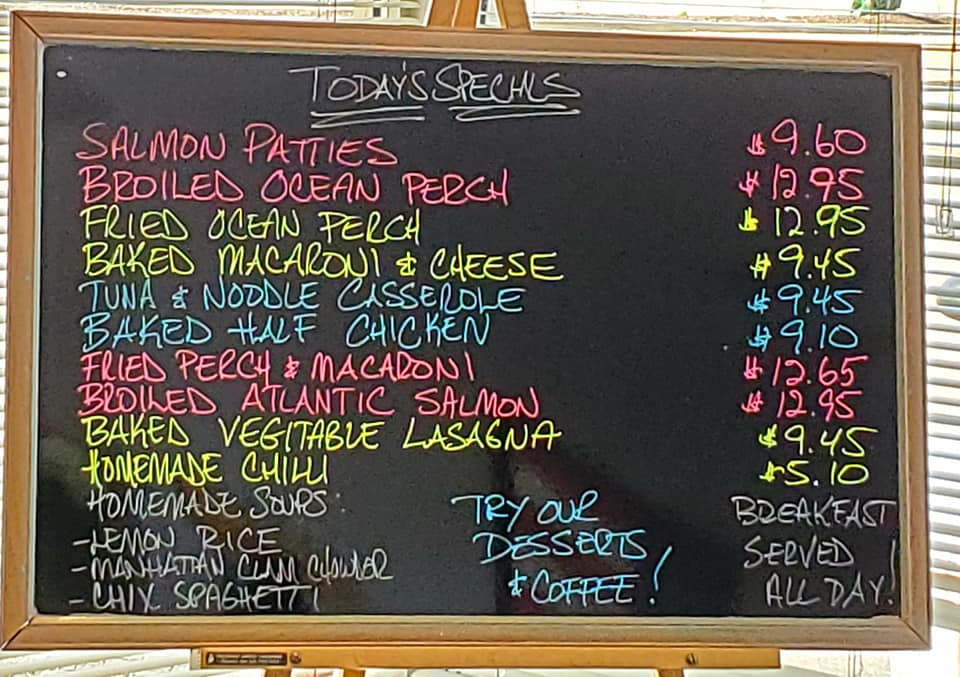 TODAY'S SPECIALS
SALMON PATTIES $9.60
BROILED OCEAN PERCH $12.95
FRIED OCEAN PERCH $12.95
BAKED MACARONI & CHEESE $9.45
TUNA & NOODLE CASSEROLE $9.45
BAKED HALF CHICKEN $9.10
FRIED PERCH & MACARONI $12.65
BROILED ATLANTIC SALMON $12.95
BAKED VEGITABLE LASAGNA $9.45
HOMEMADE CHILLI $5.10
HOMEMADE SOUPS:
-LEMON RICE
-MANHATTAN CLAM CHOWDER
-CHIX SPAGHETTI
TRY OUR
DESSERTS
& COFFEE!
BREAKFAST
SERVED
ALL DAY!